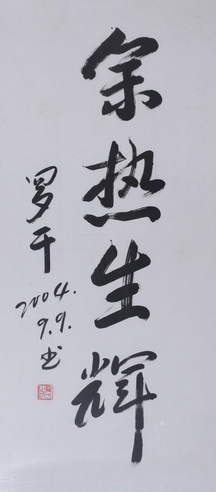 余热生辉
罗干
2004.
9.9.
书